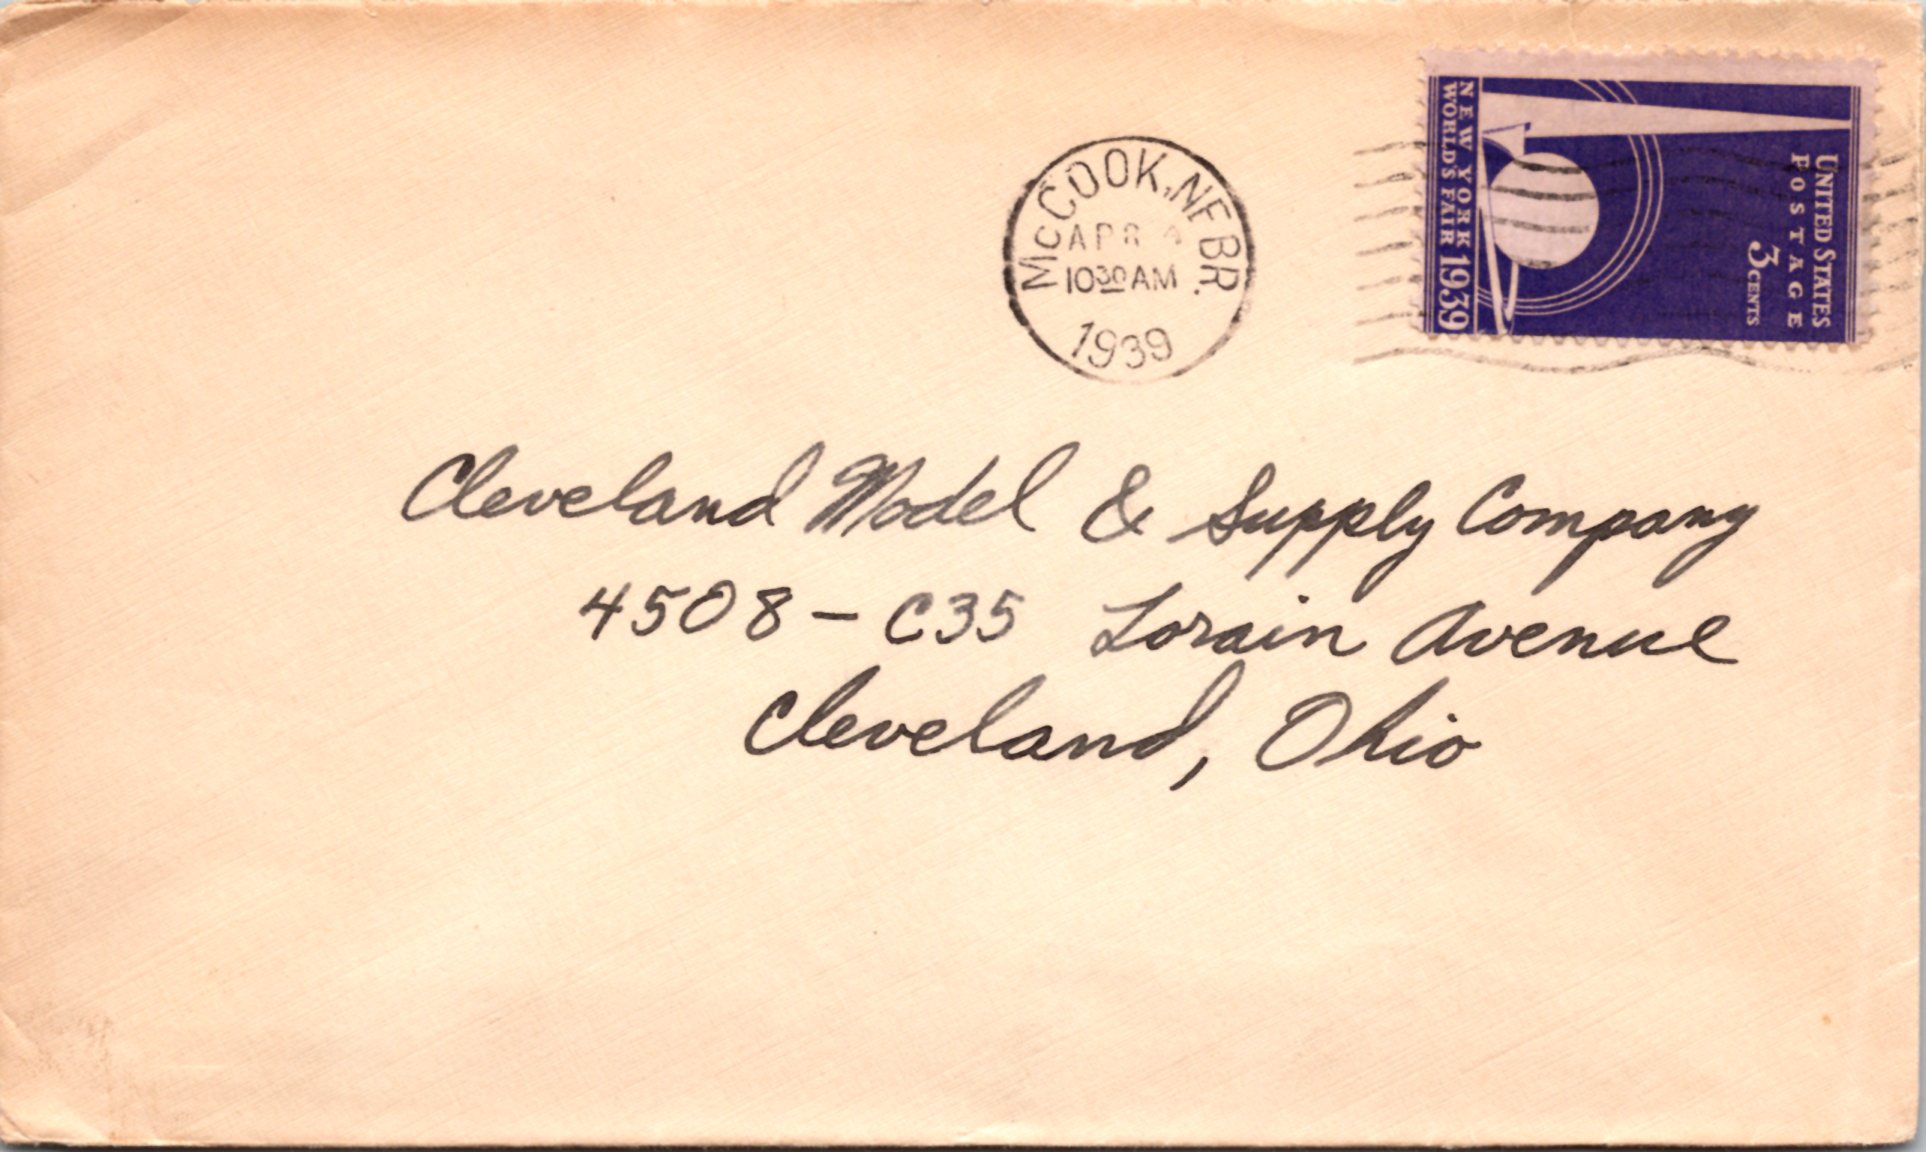 McCOOK, NEBR.
APR
10 30 AM
1939
UNITED STATES
POSTAGE
3 CENTS
NEW YORK
WORLD'S FAIR 1939
Cleveland Model & Supply Company
4508 - C35 Lorain Avenue
Cleveland, Ohio